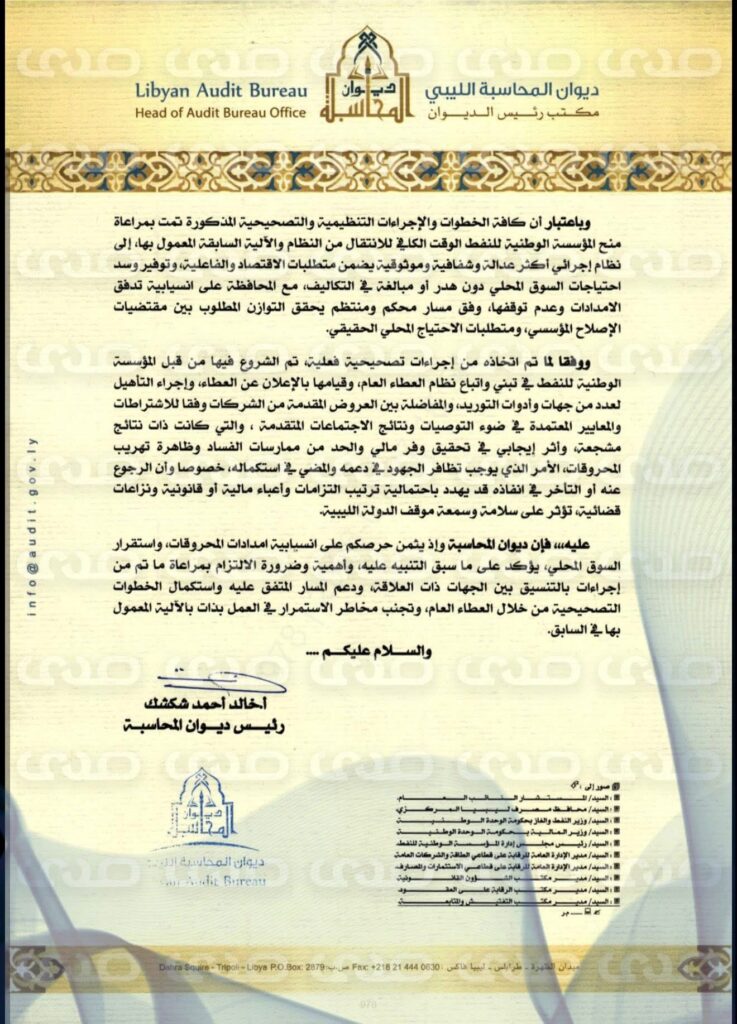 Libyan Audit Bureau
Head of Audit Bureau Office
ديوان المحاسبة
ديوان المحاسبة الليبي
مكتب رئيس الديوان
وباعتبار أن كافة الخطوات والإجراءات التنظيمية والتصحيحية المذكورة تمت بمراعاة
منح المؤسسة الوطنية للنفط الوقت الكافي للانتقال من النظام والآلية السابقة المعمول بها، إلى
نظام إجرائي أكثر عدالة وشفافية وموثوقية يضمن متطلبات الاقتصاد والفاعلية، وتوفير وسد
احتياجات السوق المحلي دون هدر أو مبالغة في التكاليف، مع المحافظة على انسيابية تدفق
الامدادات وعدم توقفها، وفق مسار محكم ومنتظم يحقق التوازن المطلوب بين مقتضيات
الإصلاح المؤسسي، ومتطلبات الاحتياج المحلي الحقيقي.
ووفقا لما تم اتخاذه من إجراءات تصحيحية فعلية، تم الشروع فيها من قبل المؤسسة
الوطنية للنفط في تبني واتباع نظام العطاء العام، وقيامها بالإعلان عن العطاء، وإجراء التأهيل
لعدد من جهات وأدوات التوريد، والمفاضلة بين العروض المقدمة من الشركات وفقا للاشتراطات
والمعايير المعتمدة في ضوء التوصيات ونتائج الاجتماعات المتقدمة ، والتي كانت ذات نتائج
مشجعة، وأثر إيجابي في تحقيق وفر مالي والحد من ممارسات الفساد وظاهرة تهريب
المحروقات، الأمر الذي يوجب تظافر الجهود في دعمه والمضي في استكماله، خصوصا وأن الرجوع
عنه أو التأخر في انفاذه قد يهدد باحتمالية ترتيب التزامات وأعباء مالية أو قانونية ونزاعات
قضائية، تؤثر على سلامة وسمعة موقف الدولة الليبية.
عليه،،، فإن ديوان المحاسبة وإذ يثمن حرصكم على انسيابية امدادات المحروقات، واستقرار
السوق المحلي، يؤكد على ما سبق التنبيه عليه، وأهمية وضرورة الالتزام بمراعاة ما تم من
إجراءات بالتنسيق بين الجهات ذات العلاقة، ودعم المسار المتفق عليه واستكمال الخطوات
التصحيحية من خلال العطاء العام، وتجنب مخاطر الاستمرار في العمل بذات بالآلية المعمول
بها في السابق.
والسلام عليكم ....
أ.خالد أحمد شكشك
رئيس ديوان المحاسبة
ديوان المحاسبة
ديوان المحاسبة
Audit Bureau
صور إلى :
السيد/ المستشار النائب العام.
السيد/ محافظ مصرف ليبيا المركزي
السيد/ وزير النفط والغاز بحكومة الوحدة الوطنية
السيد/ وزير المالية بحكومة الوحدة الوطنية
السيد/ رئيس مجلس إدارة المؤسسة الوطنية للنفط.
السيد/ مدير الإدارة العامة للرقابة على قطاعي الطاقة والشركات العامة
السيد/ مدير الإدارة العامة للرقابة على قطاعي الاستثمارات والمصارف.
السيد/ مدير مكتب الشؤون القانونية
السيد/ مدير مكتب الرقابة على العقود
السيد/ مدير مكتب التفتيش والمتابعة
info@audit.gov.ly
ميدان الظهرة - طرابلس - ليبيا فاكس : Fax: +218 21 444 0630 ص.ب: Dahra Squire - Tripoli - Libya P.O.Box: 2879
صدى